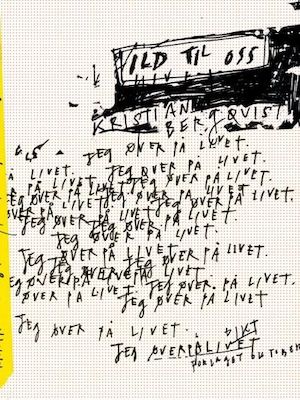 ILD TIL OSS
KRISTIAN
BERGQUIST
JEG ØVER PÅ LIVET.
LIVET. JEG ØVER PÅ LIVET.
PÅ LIVET. JEG ØVER PÅ LIVET.
ØVER PÅ LIVET. JEG ØVER PÅ LIVET.
ØVER PÅ LIVET. JEG ØVER PÅ LIVET.
JEG ØVER PÅ LIVET. JEG ØVER PÅ LIVET.
JEG ØVER PÅ LIVET.
JEG ØVER PÅ LIVET. ØVER PÅ LIVET.
JEG ØVER PÅ LIVET.
EG ØVER PÅ LIVET. JEG ØVER PÅ LIVET.
ØVER PÅ LIVET. JEG ØVER PÅ LIVET
JEG ØVER PÅ LIVET.
DIKT
JEG ØVER PÅ LIVET
FORLAGET OKTOBER